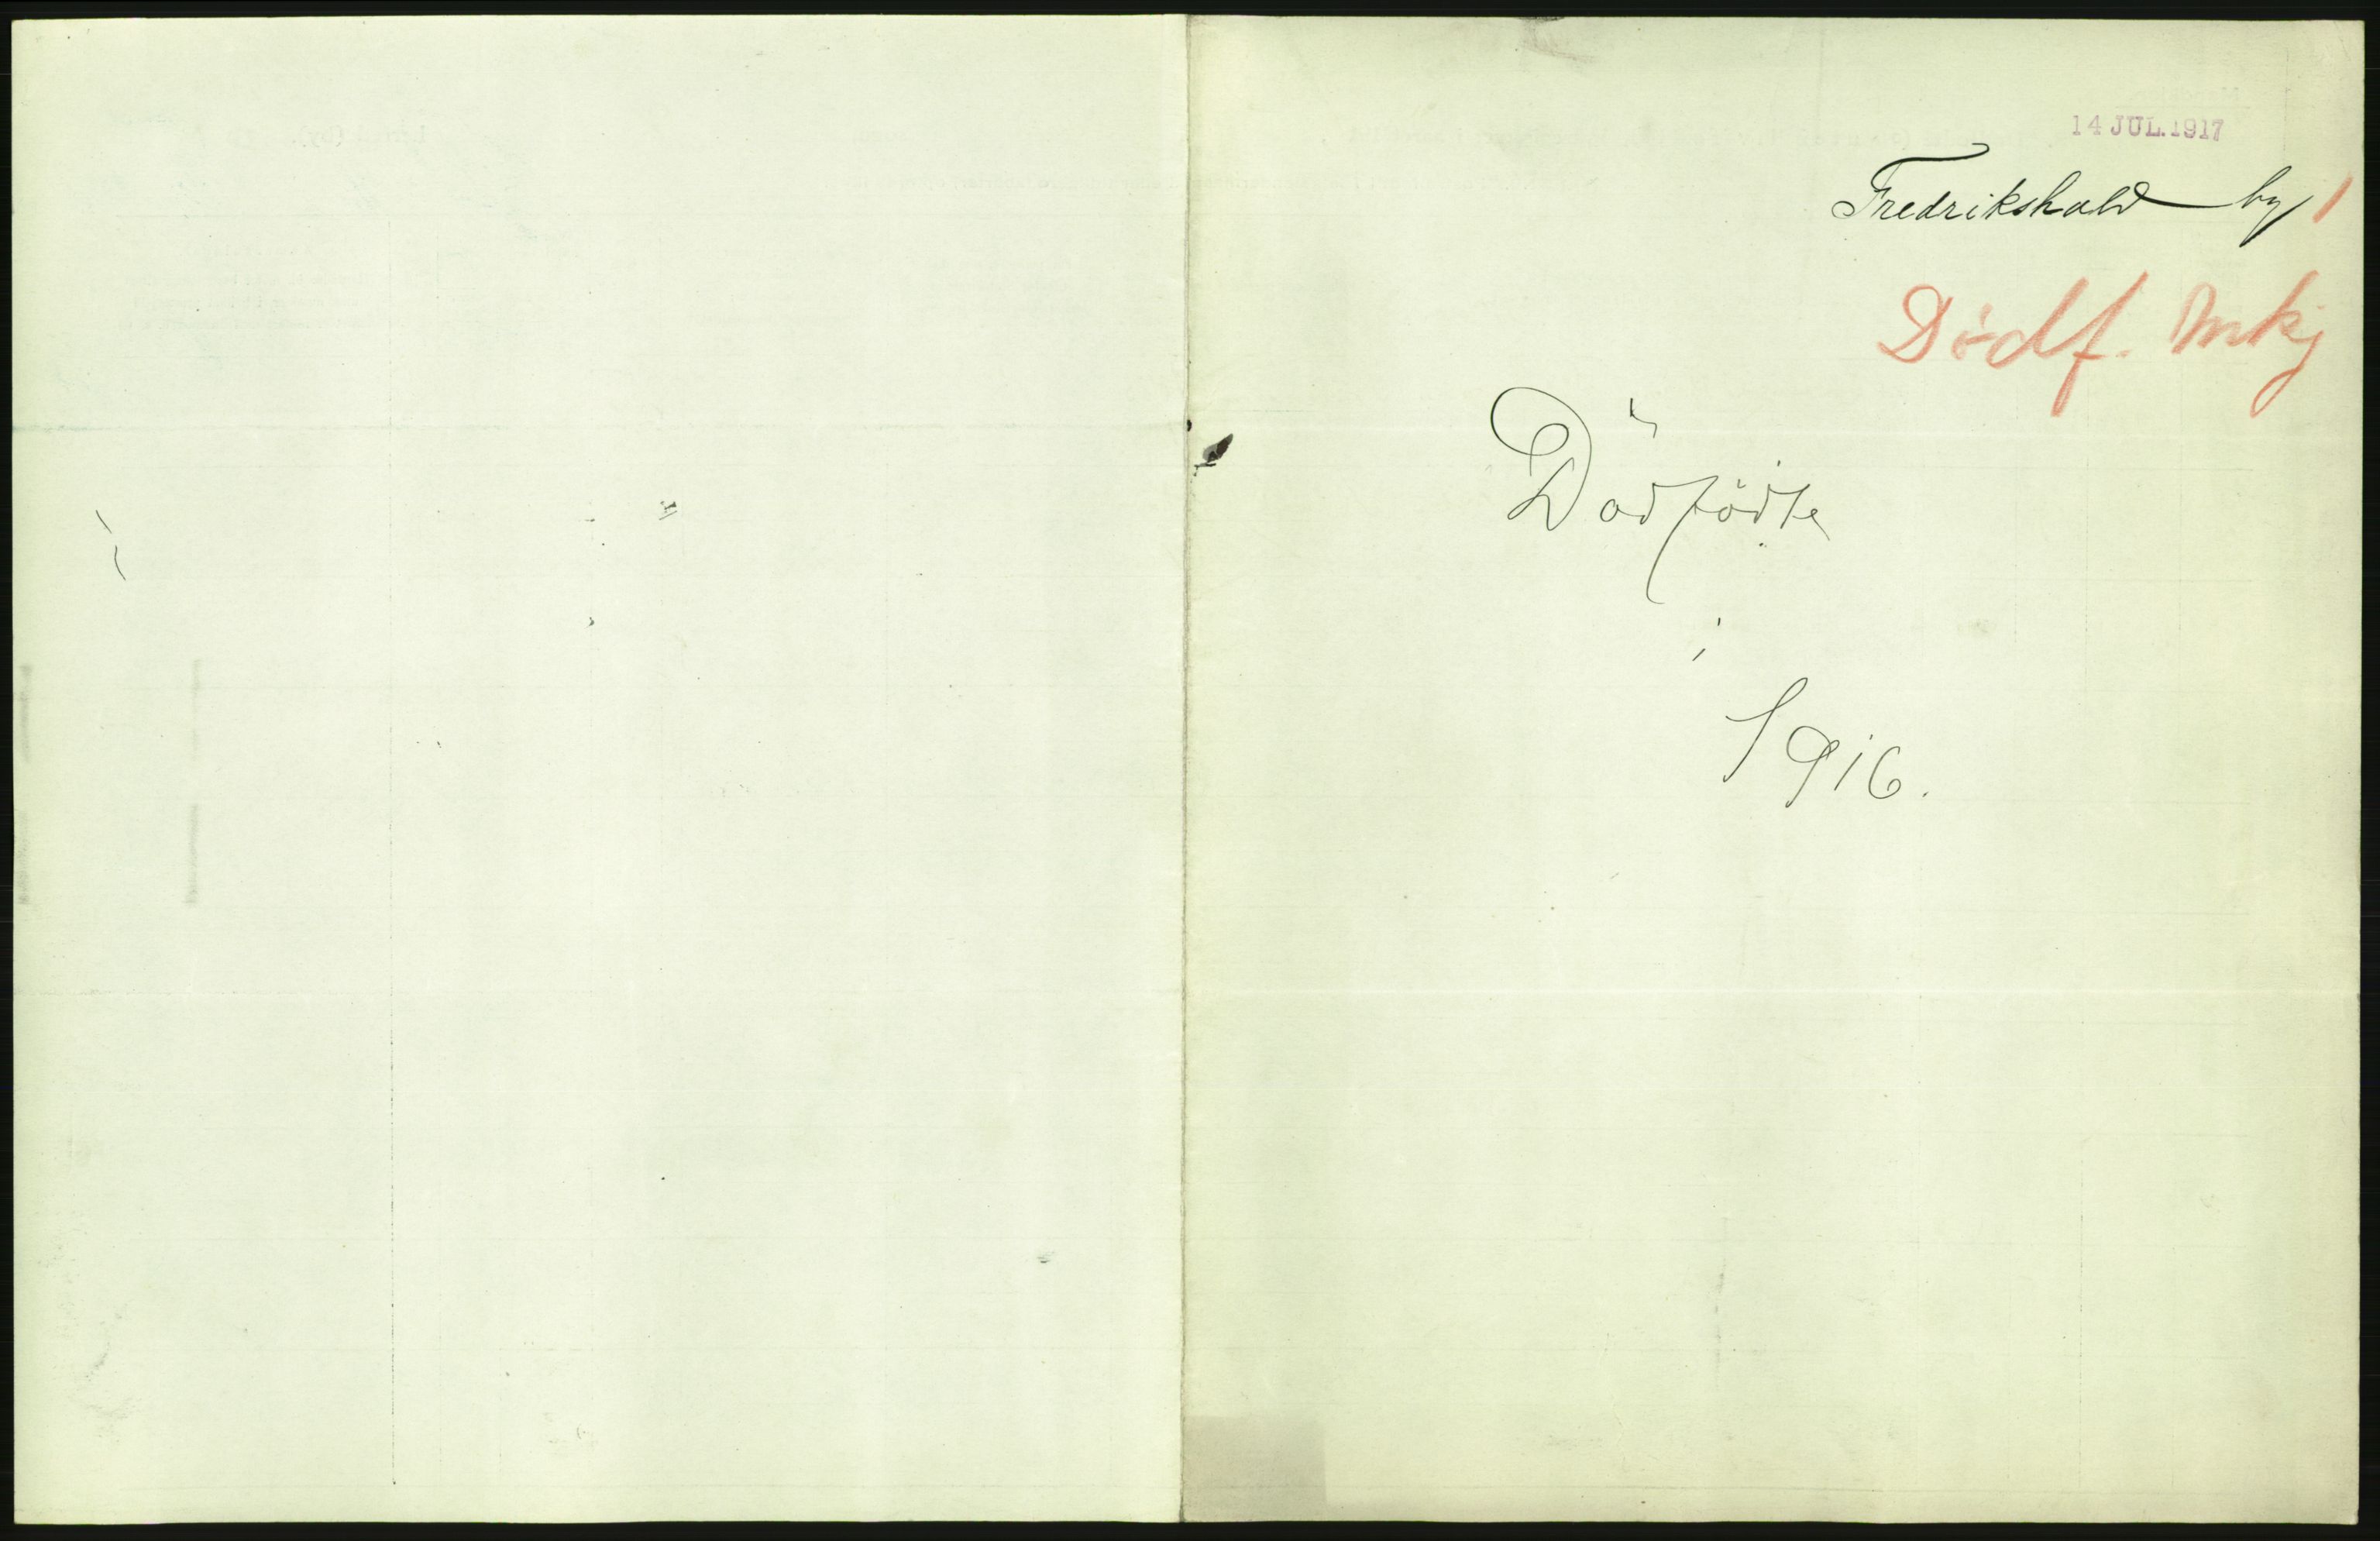 14 JUL. 1917
Fredrikshald by 1
Dödf. mkj
Dödfödte
i
1916.